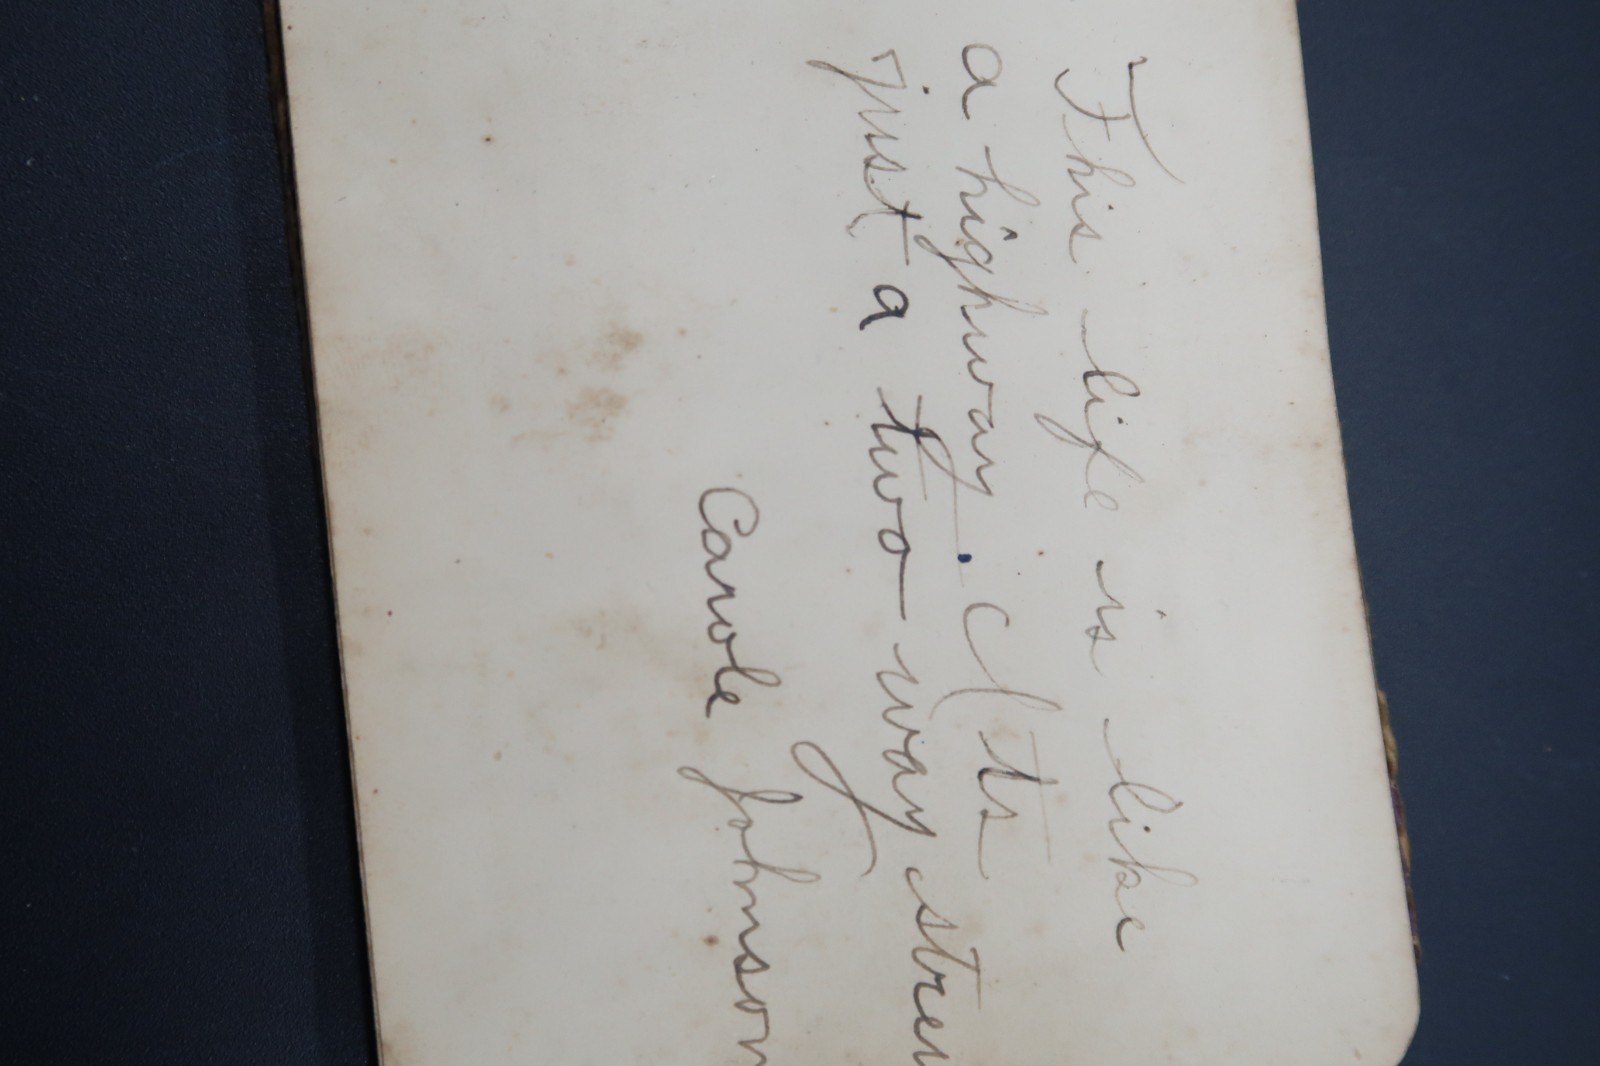 This life is like
a highway. Its
just a two way
Carole Johnson